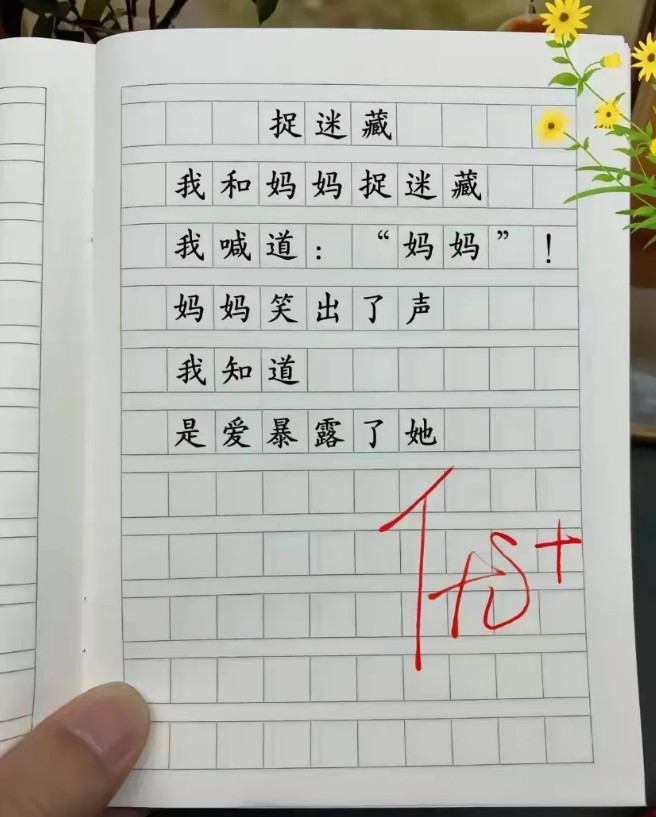 捉迷藏
我和妈妈捉迷藏
我喊道：“妈妈”！
妈妈笑出了声
我知道
是爱暴露了她
优+